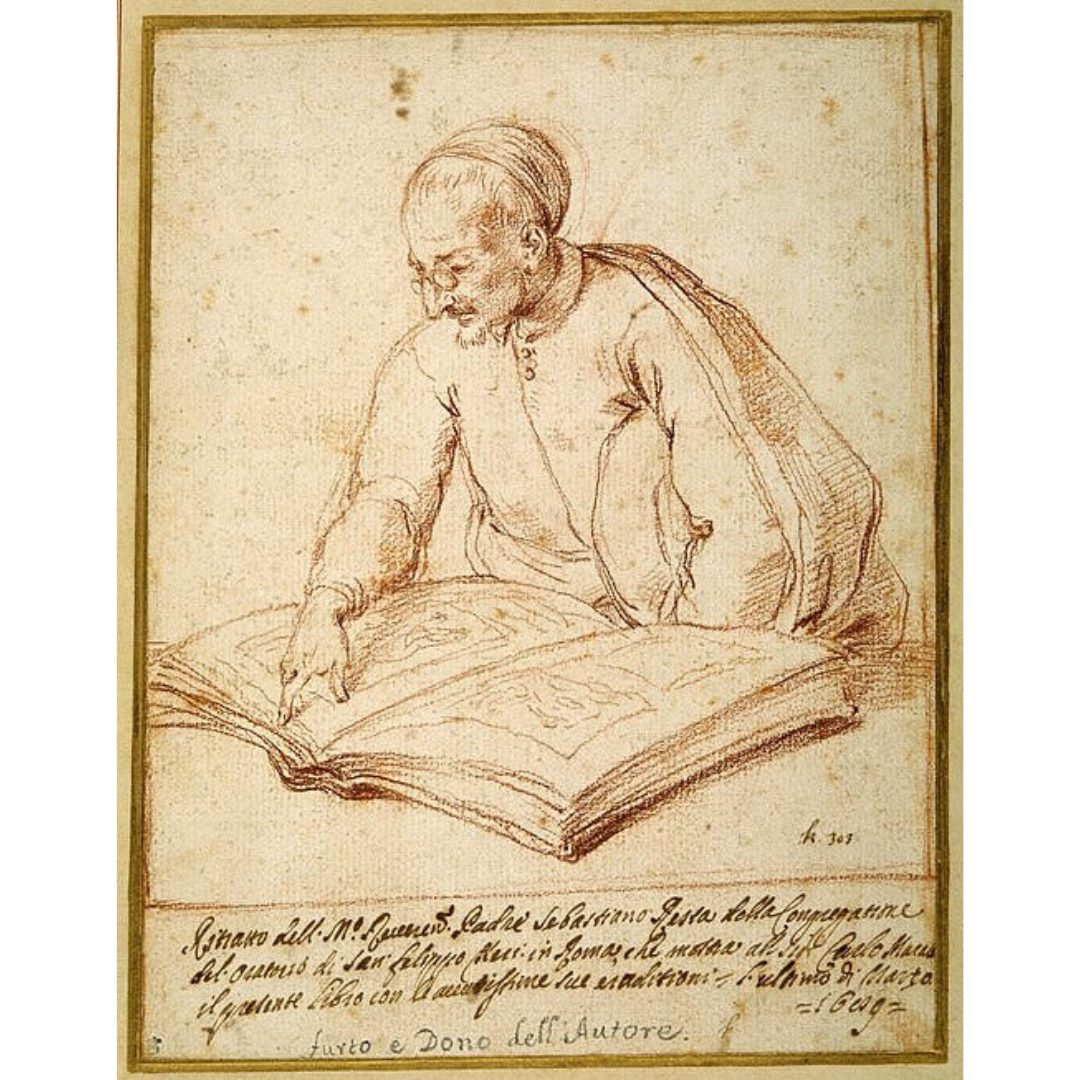 k. 303
Ritratto dell. Mº. Reverendº. Padre Sebastiano Resta della Congregatione
del Oratorio di San Filippo Neri in Roma, che mostra al Sigr. Carlo Marat
il presente Libro con le sue eruditioni = l'ultimo di Marzo
= 1689 =
furto e Dono dell'Autore.